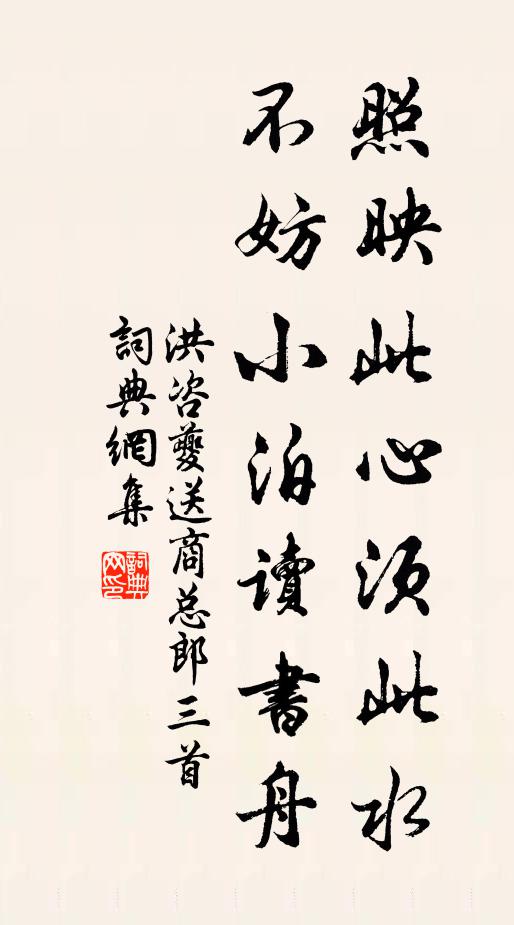 照映此心须此水
不妨小泊讀書舟
洪咨夔送商总郎三首
詞典網集
詞典网印